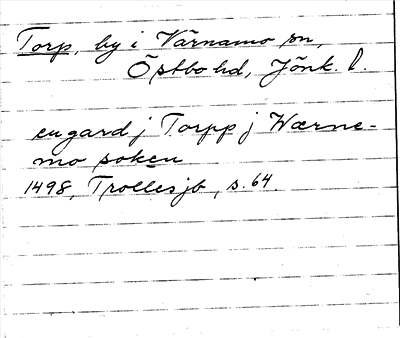 Torp, by i Värnamo sn,
Östbo hd, Jönk. l.
en gard j Torpp j Wærne-
mo soken
1498, Trollesjb, s. 64